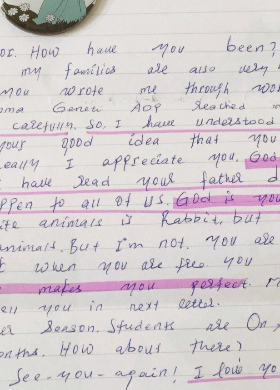 or. How have you been?
my families are also very
you wrote me through
Genew AOP Reached m
carefully. So, I have understood
your good idea that you
eally I appreciate you. God
have Read your father d
ppen to all of us. God is you
ite animals is Rabbit, but
animals. But I'm not. You are
when you are free you
makes you perfect.
ell you in next letter.
er Season. Students are On,
onths. How about there?
See-you-again! I love yo